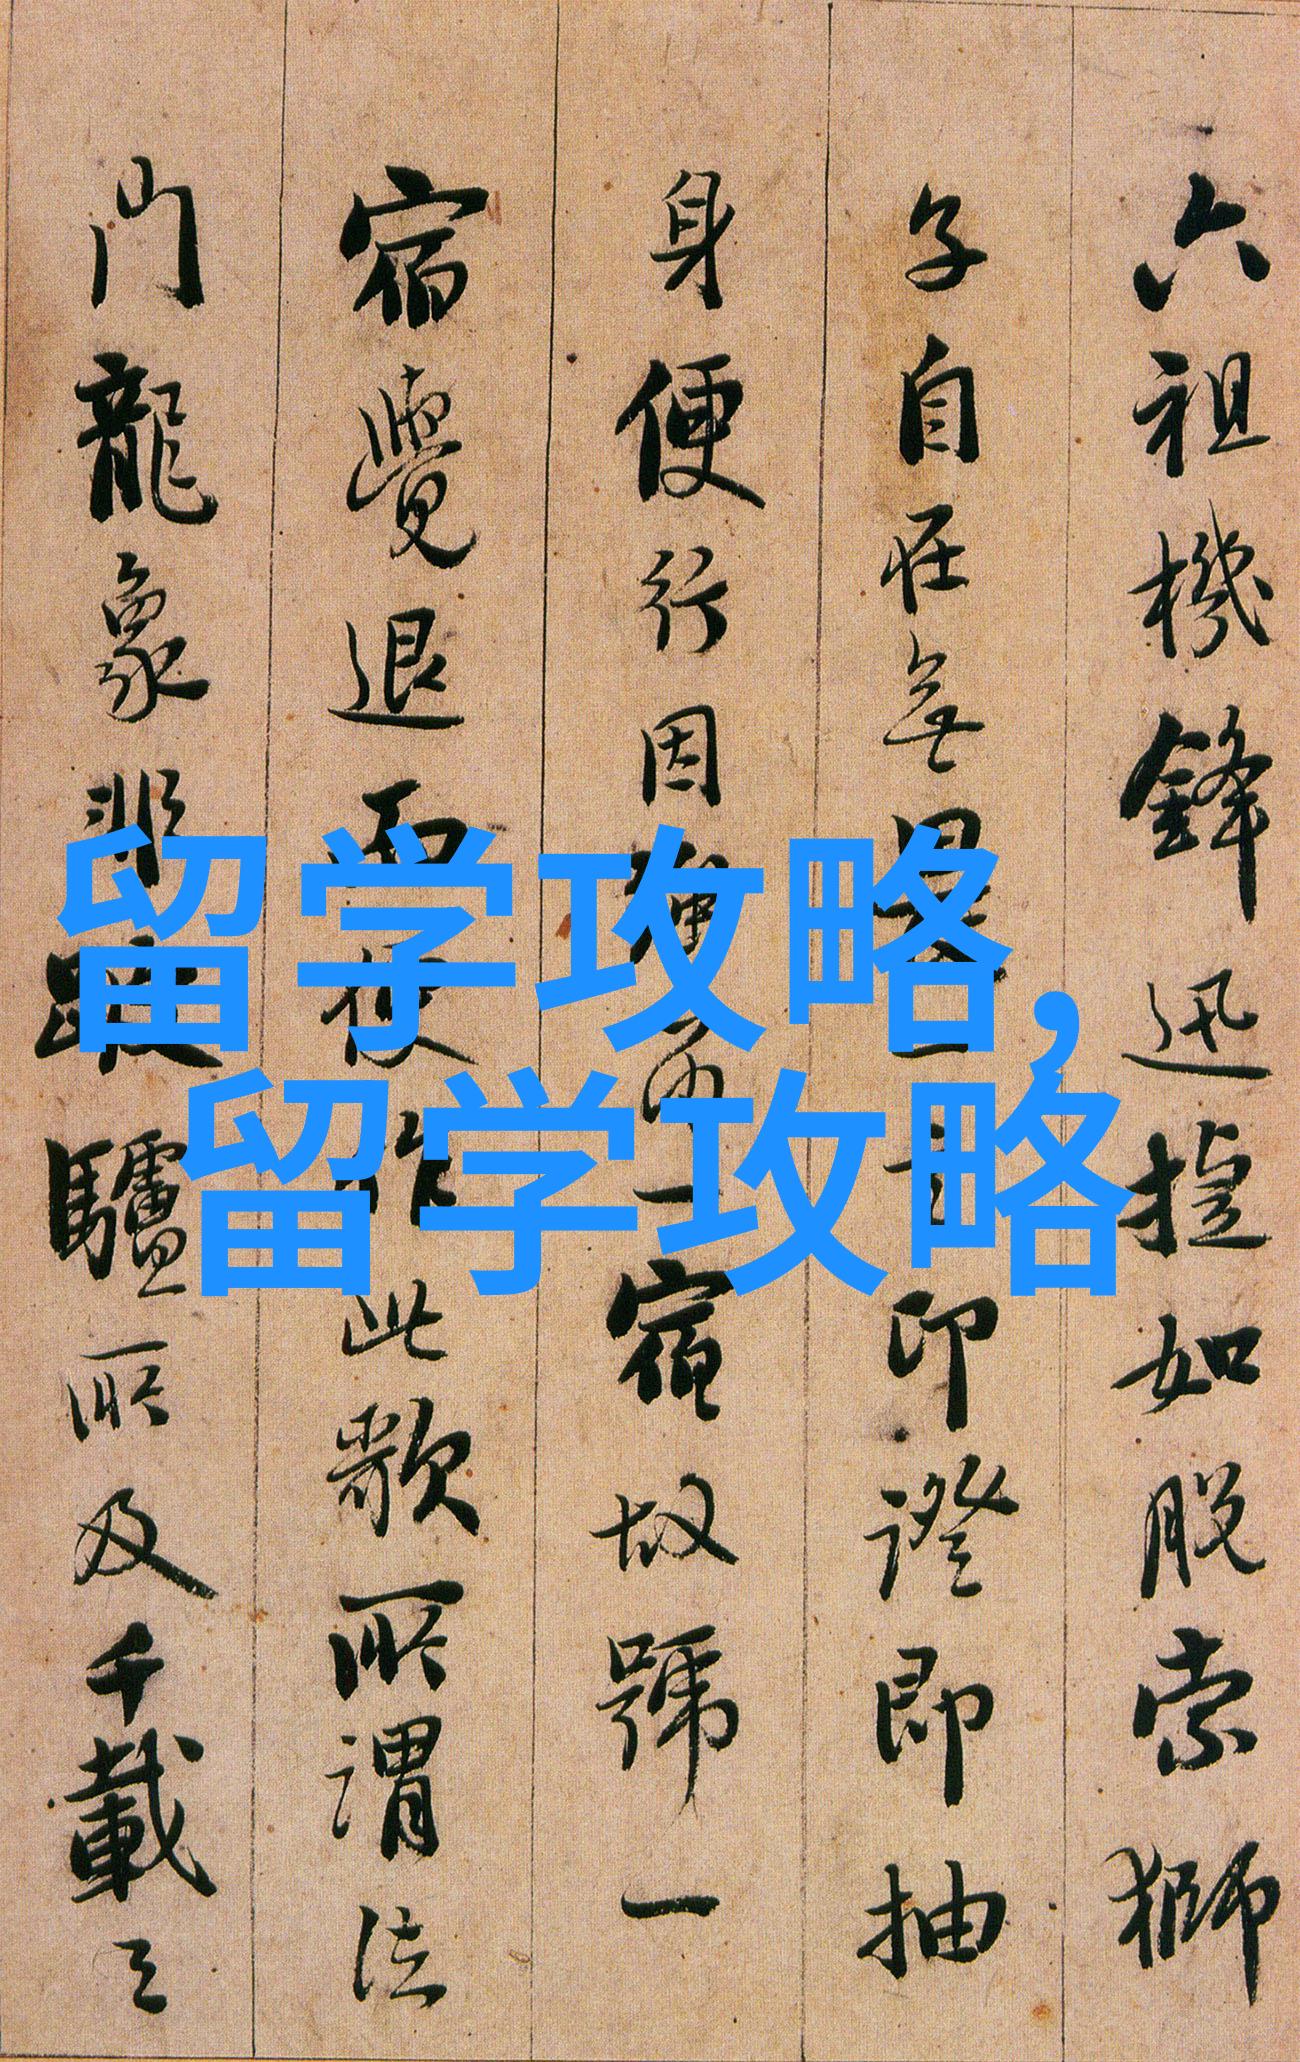 六祖機鋒迅捷如脫索獅
子自在無印證即抽
身便行因一宿故號一
宿覺退而便作此歌所謂法
門龍象非跛驢所及千載之
留学攻略,
留学攻略